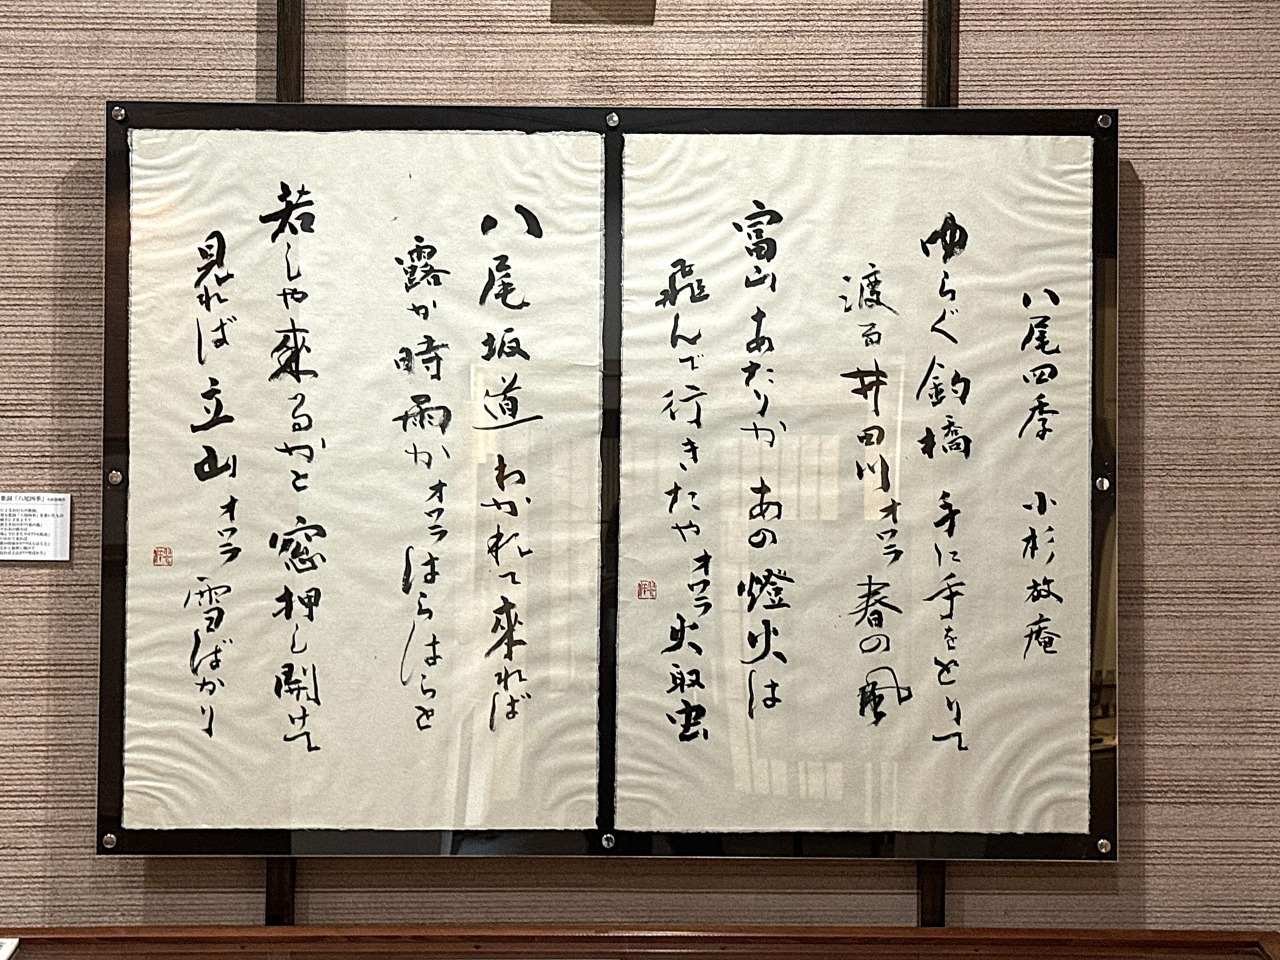 八尾四季 小杉放庵
ゆらぐ釣橋 手に手をとりて
渡る井田川オワラ春の風
富山あたりか あの燈火は
飛んで行きたやオワラ火取虫
八尾坂道 わかれて来れば
露か時雨かオワラはらはらと
若しや來るかと 窓押し開けて
見れば立山オワラ雪ばかり
歌詞「八尾四季」